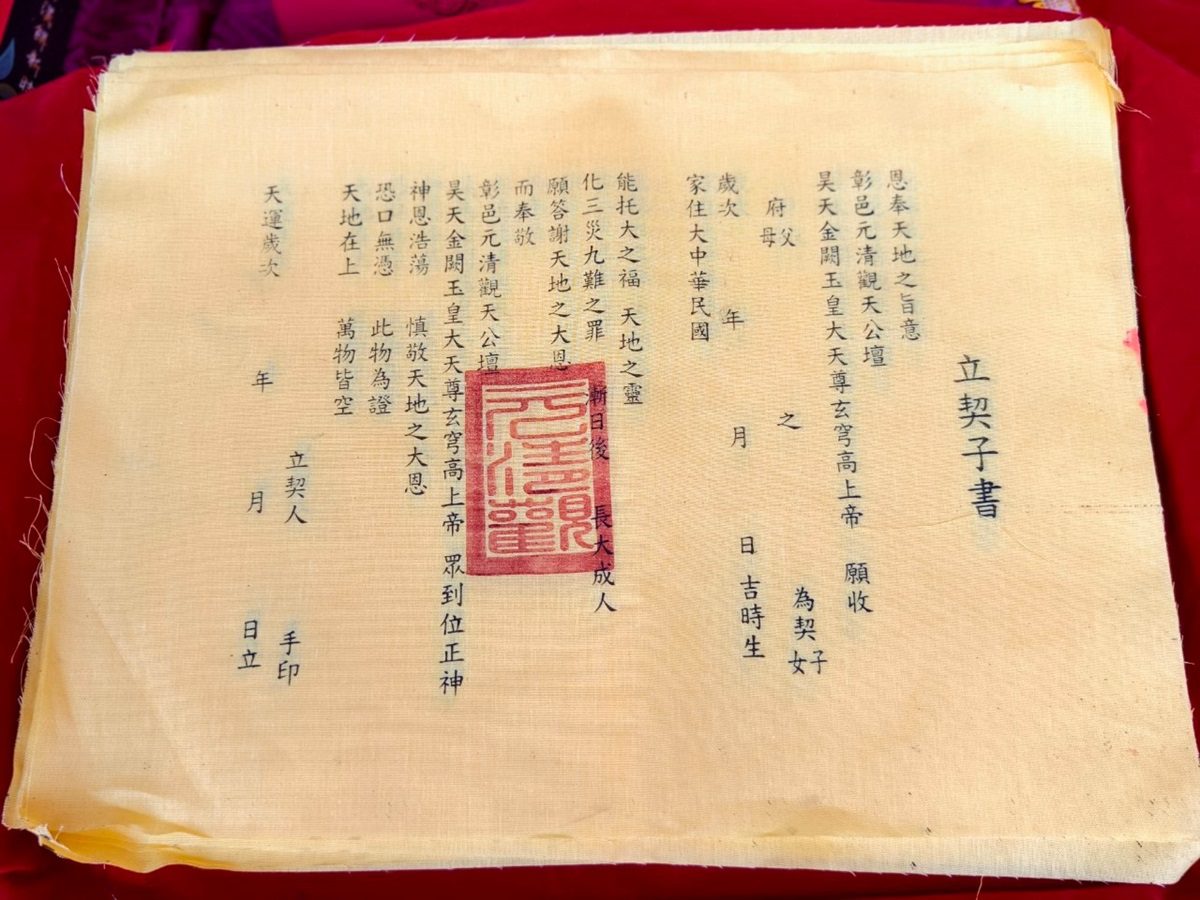 立契子書
恩奉天地之旨意
彰邑元清觀天公壇
昊天金闕玉皇大天尊玄穹高上帝 願收
府 父母 之 為契子女
歲次 年 月 日 吉時生
家住大中華民國
能托大之福 天地之靈
化三災九難之罪 漸日後 長大成人
願答謝天地之大恩
而奉敬
彰邑元清觀天公壇
昊天金闕玉皇大天尊玄穹高上帝 眾到位正神
神恩浩蕩 慎敬天地之大恩
恐口無憑 此物為證
天地在上 萬物皆空
立契人 手印
天運歲次 年 月 日立
元清觀